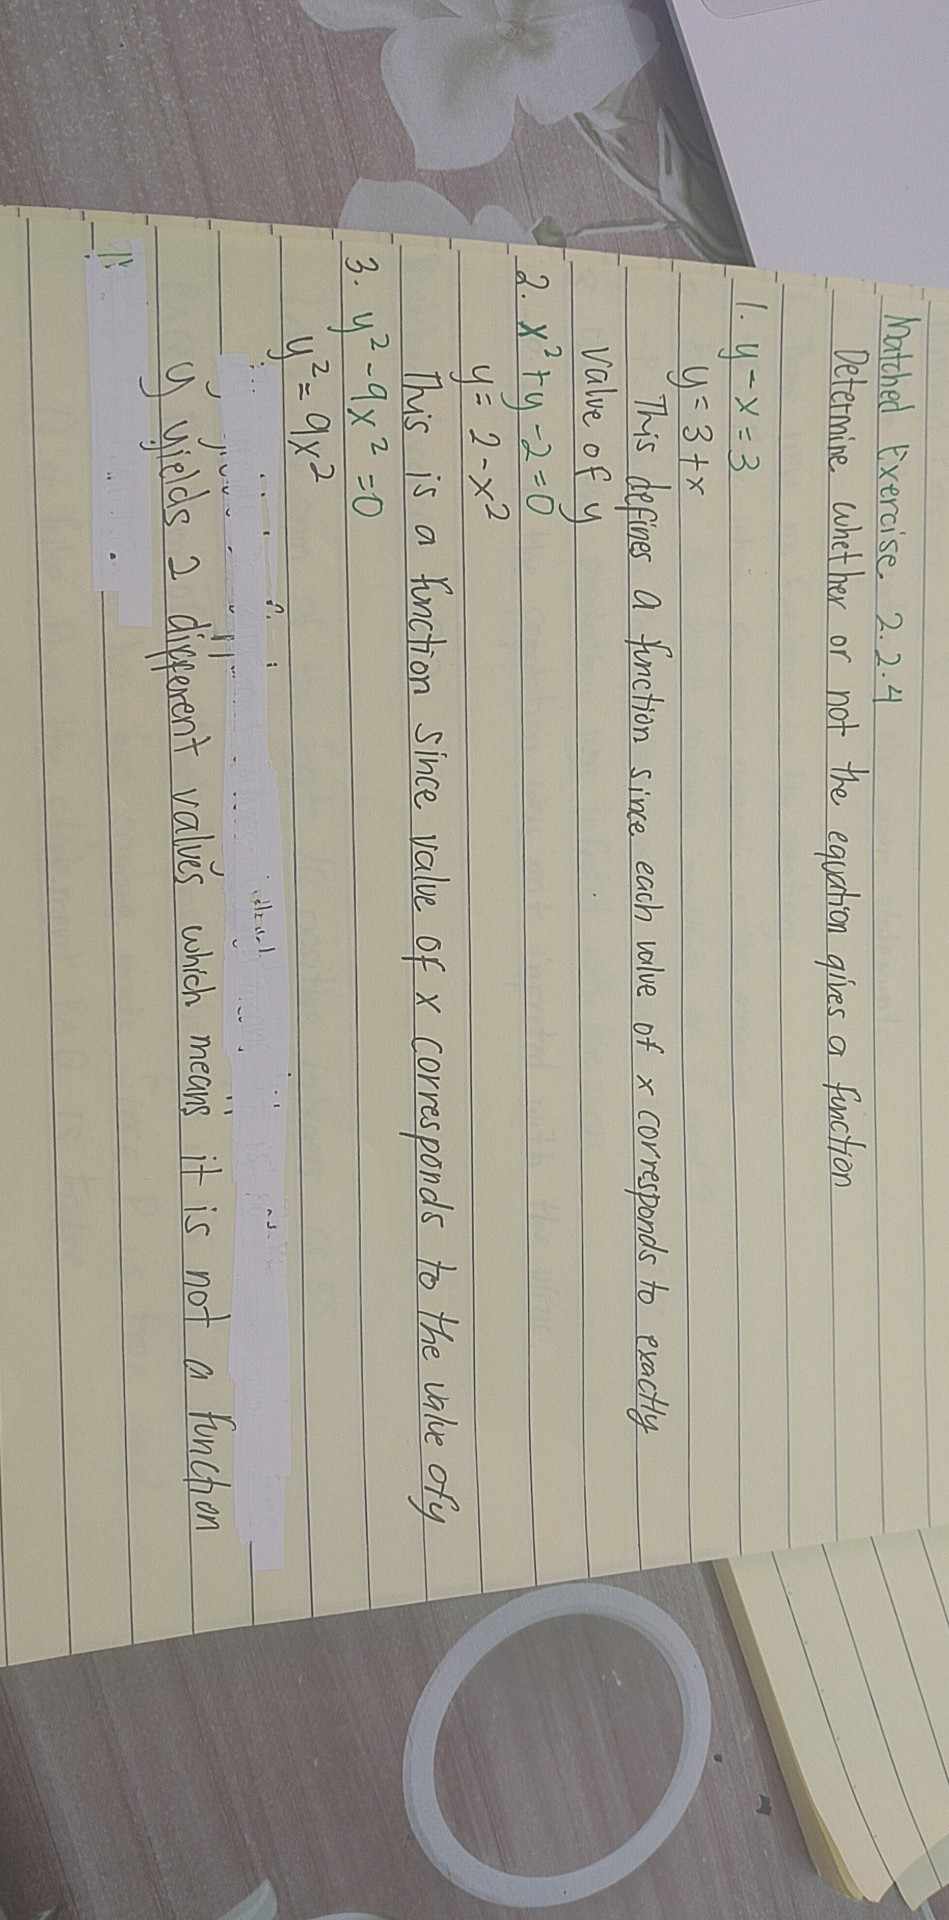 Matched Exercise 2.2.4
Determine whether or not the equation gives a function
1. y - x = 3
y = 3 + x
This defines a function since each value of x corresponds to exactly
value of y
2. x² + y - 2 = 0
y = 2 - x²
This is a function since value of x corresponds to the value of y
3. y² - 9x² = 0
y² = 9x²
y yields 2 different values which means it is not a function